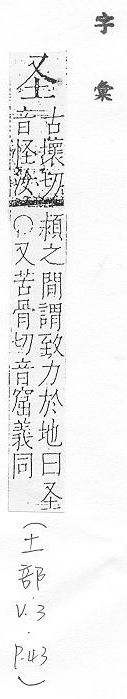 字彙
圣
古壞切
音怪汝
潁之間謂致力於地曰圣
○又苦骨切音窟義同
(土部.V.3.P.43)